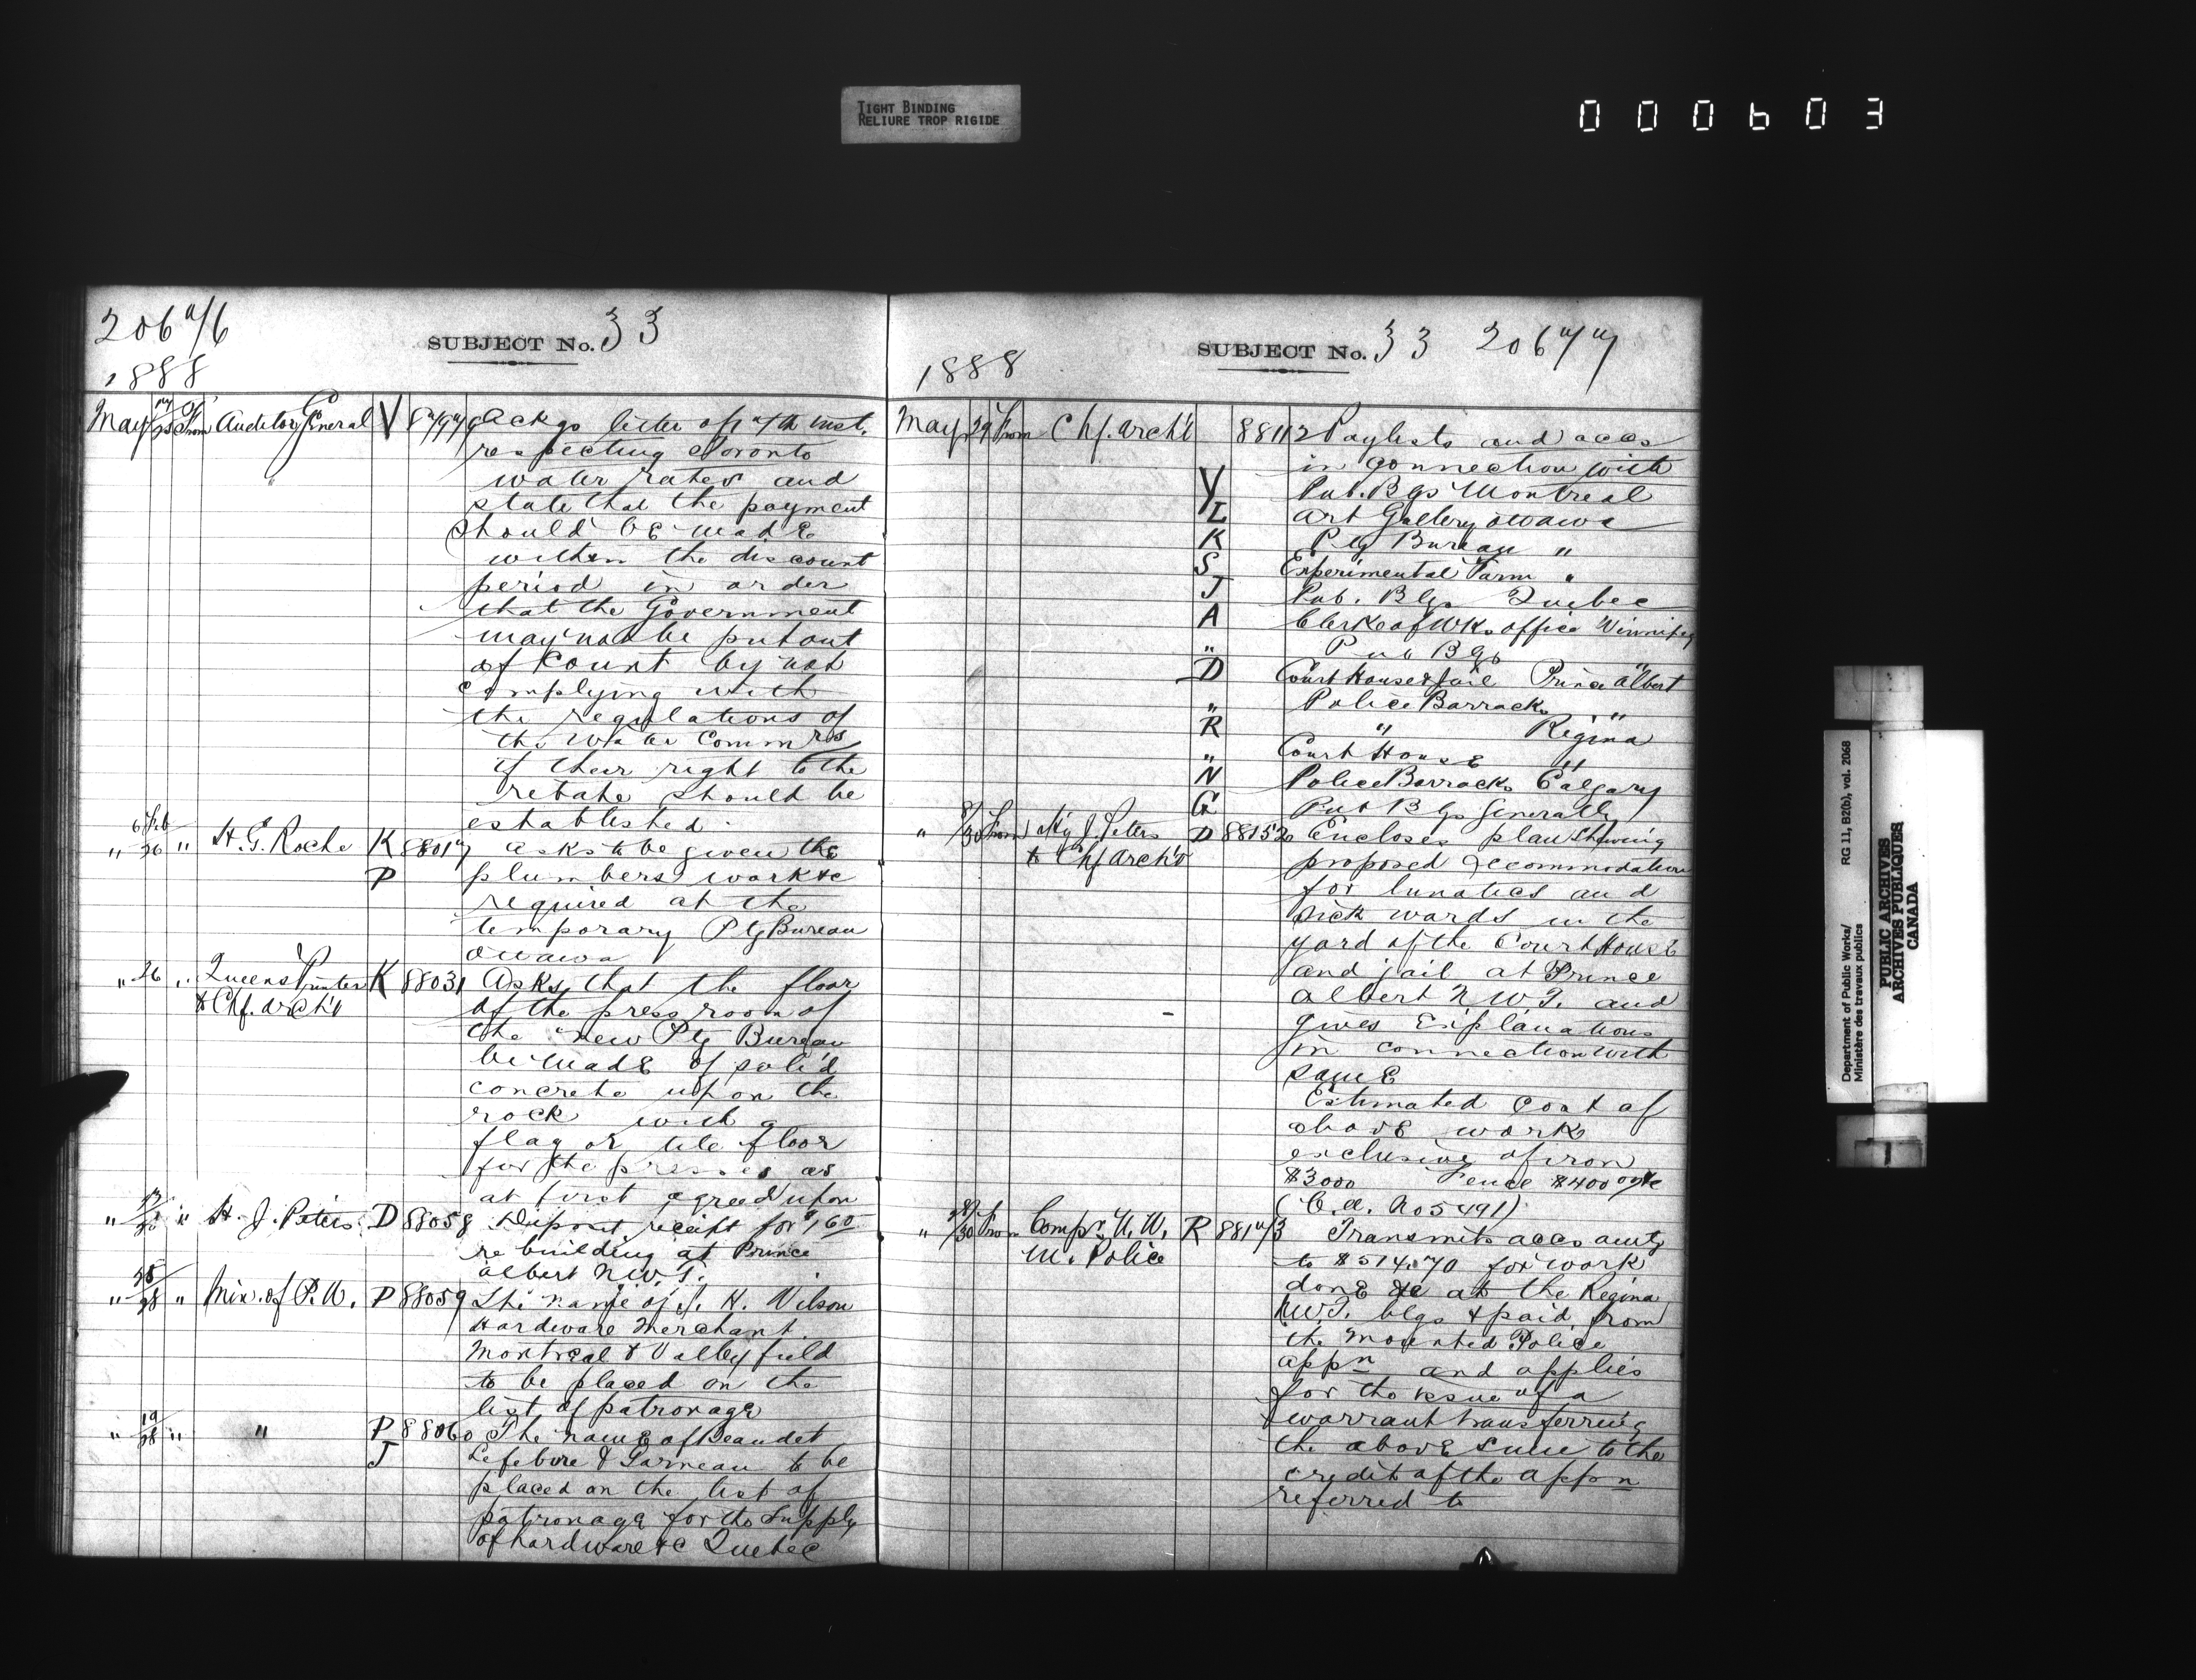 TIGHT BINDING
RELIURE TROP RIGIDE
000603
206
SUBJECT No. 33
1888
May From Auditor General V Ackgs letter of inst.
respecting Toronto
water rates and
state that the payment
should be made
within the discount
period in order
that the Government
may not be put out
of Count by not
complying with
the regulations of
the Water Commrs
if their right to the
rebate should be
established.
6 Feb
" 26 " H. G. Roche K 88017 asks to be given the
P plumbers work &c
required at the
temporary Ptg Bureau
Ottawa
" 26 " Queens Printer K 88031 Asks that the floor
to Chf. Archt of the press room of
the new Ptg Bureau
be made of solid
concrete upon the
rock with a
flag or tile floor
for the presses as
at first agreed upon
" " H. J. Peters D 88058 Deposit receipt for
re building at Prince
Albert N.W.T.
" 28 " Min. of P. W. P 88059 The name of J. H. Wilson
Hardware Merchant
Montreal & Valleyfield
to be placed on the
list of patronage
" 19/28 " " P 88060 The name of Beaudet
J Lefebvre & Garneau to be
placed on the list of
patronage for the supply
of hardware &c Quebec
SUBJECT No. 33 206
1888
May 29 From Chf. Archt 88112 Paylists and accs
in connection with
V Pub. Bgs Montreal
L Art Gallery Ottawa
K Ptg Bureau "
S Experimental Farm "
J Pub. Blgs Quebec
A Clerk of Wks office Winnipeg
" Pub Bgs "
D Court House & Jail Prince Albert
" Police Barracks "
R " Regina
" Court House "
N Police Barracks Calgary
G Pub Bgs Generally
" 30 From J. Peters D 88152 Encloses plan showing
to Chf Archt proposed accommodation
for lunatics and
sick wards in the
yard of the Court House
and jail at Prince
Albert N.W.T. and
gives explanations
in connection with
same
Estimated cost of
above work
exclusive of iron
$3000 Fence $400
(C.A. No 5491)
" 30 From Compr. N. W. R Transmits accs amtg
M. Police to $514.70 for work
done &c at the Regina
N.W.T. blgs & paid from
the Mounted Police
appn and applies
for the issue of a
warrant transferring
the above sum to the
credit of the appn
referred to
Department of Public Works/
Ministère des travaux publics
RG 11, B2(b), vol. 2068
PUBLIC ARCHIVES
ARCHIVES PUBLIQUES
CANADA